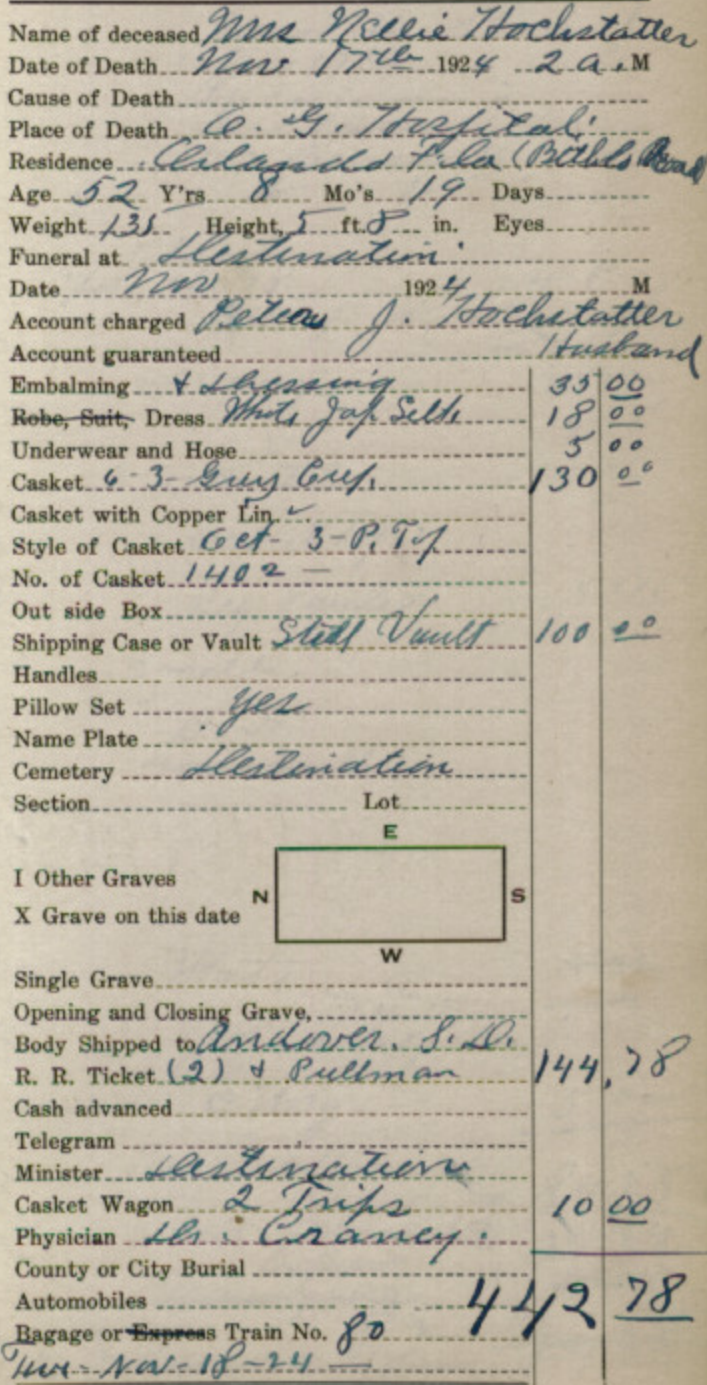 Name of deceased Mrs Nellie Hochstatter
Date of Death Nov 17th 1924 2 a. M
Cause of Death
Place of Death O. G. Hospital
Residence Orlando Fla (Road
Age 52 Y'rs 8 Mo's 19 Days
Weight 135 Height, 5 ft. 8 in. Eyes
Funeral at Destination
Date Nov 1924 M
Account charged Peter J. Hochstatter
Account guaranteed Husband
Embalming & Dressing 35 00
Robe, Suit, Dress White Jap Silk 18 00
Underwear and Hose 5 00
Casket 6-3- Grey Crep. 130 00
Casket with Copper Lin.
Style of Casket Oct- 3-P. Top
No. of Casket 1402 —
Out side Box
Shipping Case or Vault Steel Vault 100 00
Handles
Pillow Set yes
Name Plate
Cemetery Destination
Section Lot
E
I Other Graves
N S
X Grave on this date
W
Single Grave
Opening and Closing Grave,
Body Shipped to Andover. S. D.
R. R. Ticket (2) & Pullman 144.78
Cash advanced
Telegram
Minister Destination
Casket Wagon 2 Trips 10 00
Physician Dr. Craney.
County or City Burial
Automobiles 442 78
Bagage or Express Train No. 80
Nov-18-24